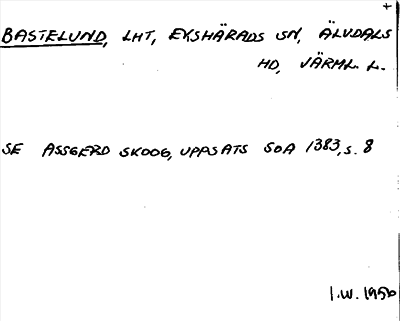 +
BASTELUND, LHT, EKSHÄRADS SN, ÄLVDALS
HD, VÄRML. L.
SE ASSGERD SKOOG, UPPSATS SOA 1383, S. 8
I.W. 1956